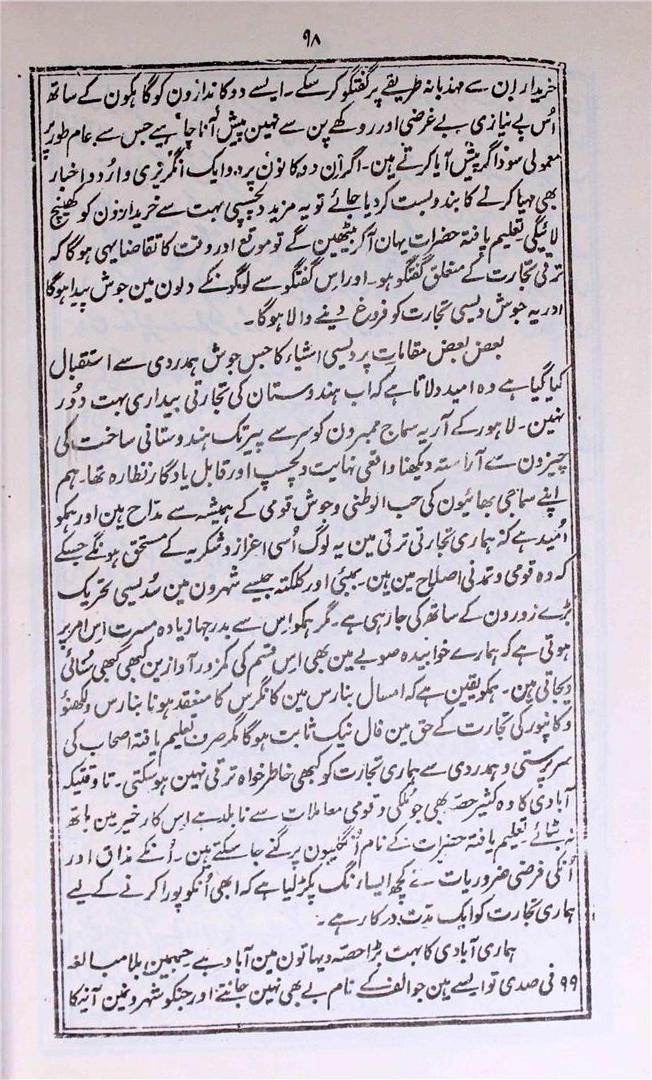 ۹۸
خریدار اِن سے مہذبانہ طریقے پر گفتگو کر سکے۔ ایسے دوکاندازون کو گاہکون کے ساتھ
اُس بے نیازی بے غرضی اور روکھے پن سے نہین پیش آنا چاہیے جس سے عام طور پر
معمولی سوداگر پیش آیا کرتے ہین۔ اگر اِن دوکانون پر دو ایک انگریزی و اردو اخبار
بھی مہیا کرنے کا بندوبست کر دیا جائے تو یہ مزید دلچسپی بہت سے خریدارون کو کھینچ
لائیگی تعلیم یافتہ حضرات یہان آکر بیٹھین گے تو موقع اور وقت کا تقاضا یہی ہوگا کہ
ترقی تجارت کے متعلق گفتگو ہو۔ اور اس گفتگو سے لوگونکے دلون مین جوش پیدا ہوگا
اور یہ جوش دیسی تجارت کو فروغ دینے والا ہوگا۔
بعض بعض مقامات پر دیسی اشیاء کا جس جوش ہمدردی سے استقبال
کیا گیا ہے وہ امید دلاتا ہے کہ اب ہندوستان کی تجارتی بیداری بہت دُور
نہین۔ لاہور کے آریہ سماج ممبرون کو سر سے پیر تک ہندوستانی ساخت کی
چیزون سے آراستہ دیکھنا واقعی نہایت دلچسپ اور قابل یادگار نظارہ تھا۔ ہم
اپنے سماجی بھائیون کی حب الوطنی و جوش قومی کے ہمیشہ سے مداح ہین اور ہمکو
اُمید ہے کہ ہماری تجارتی ترقی مین یہ لوگ اُسی اعزاز و شکریہ کے مستحق ہونگے جسکے
کہ وہ قومی و تمدنی اصلاح مین ہین۔ بمبئی اور کلکتہ جیسے شہرون مین سُدیسی تحریک
بڑے زورون کے ساتھ کی جا رہی ہے۔ مگر ہمکو اِس سے بدرجہا زیادہ مسرت اِس امر پر
ہوتی ہے کہ ہمارے خوابیدہ صوبے مین بھی اِس قسم کی کمزور آوازین کبھی کبھی سُنائی
دیجاتی ہین۔ ہمکو یقین ہے کہ امسال بنارس مین کانگرس کا منعقد ہونا بنارس و لکھنؤ
و کانپور کی تجارت کے حق مین فال نیک ثابت ہوگا مگر صرف تعلیم یافتہ اصحاب کی
سرپرستی و ہمدردی سے ہماری تجارت کو کبھی خاطر خواہ ترقی نہین ہو سکتی۔ تا وقتیکہ
آبادی کا وہ کثیر حصہ بھی جو ملکی و قومی معاملات سے نابلد ہے اِس کار خیر مین ہاتھ
نہ بٹائے۔ تعلیم یافتہ حضرات کے نام اُنگلیون پر گنے جا سکتے ہین۔ اُنکے مذاق اور
اُنکی فرضی ضروریات نے کچھ ایسا رنگ پکڑ لیا ہے کہ ابھی اُنکو پورا کرنے کے لیے
ہماری تجارت کو ایک مدّت درکار ہے۔
ہماری آبادی کا بہت بڑا حصّہ دیہاتون مین آباد ہے۔ جسمین بلا مبالغہ
۹۹ فی صدی تو ایسے ہین جو الف کے نام بے بھی نہین جانتے اور جنکو شہرونمین آنیکا